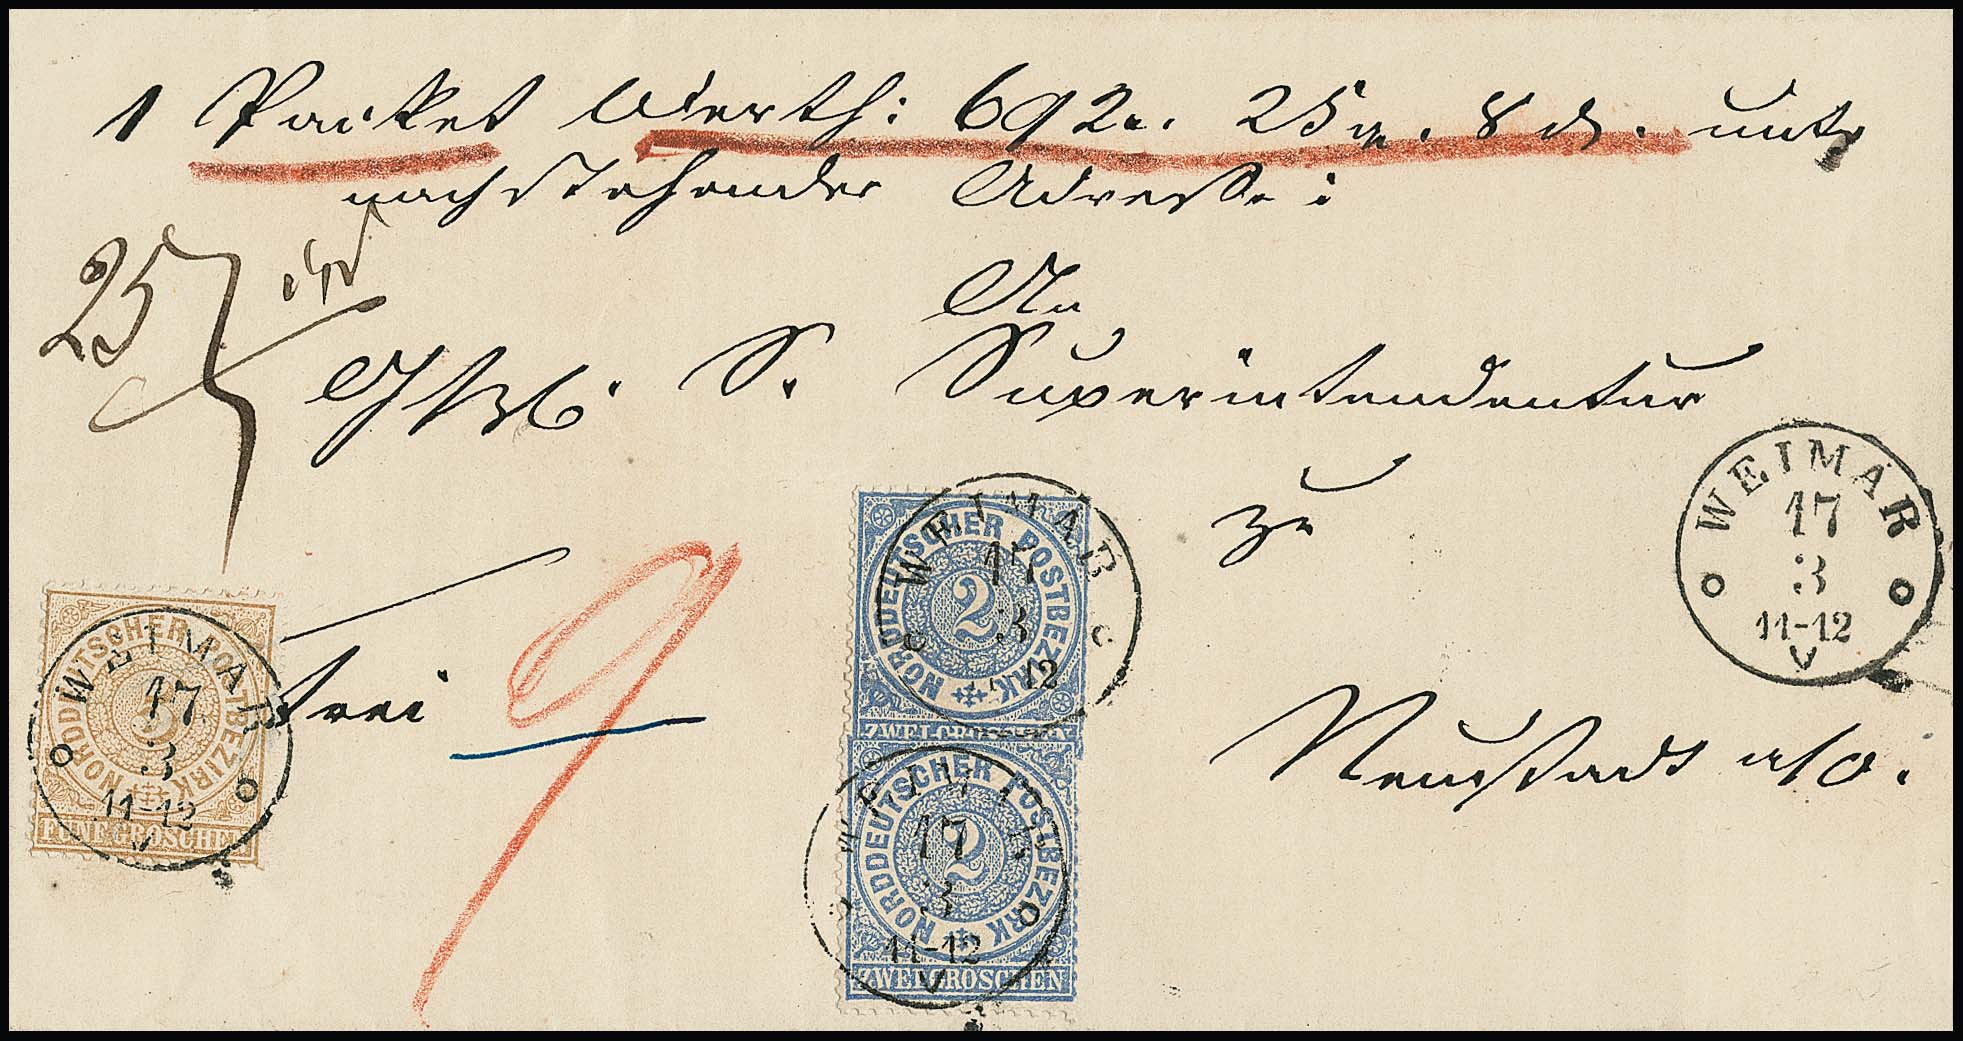 1 Packet Werth: 692 r. 25 gr. 8 d. unter
nachstehender Adresse:
25
An
Ghzl. S. Superintendentur
zu
frei
9
Neustadt a/O.
WEIMAR
17
3
11-12
V
WEIMAR
17
3
12
NORDDEUTSCHER POSTBEZIRK
2
ZWEI GROSCHEN
WEIMAR
17
3
11-12
V
NORDDEUTSCHER POSTBEZIRK
2
ZWEI GROSCHEN
WEIMAR
17
3
11-12
V
NORDDEUTSCHER POSTBEZIRK
5
FÜNF GROSCHEN